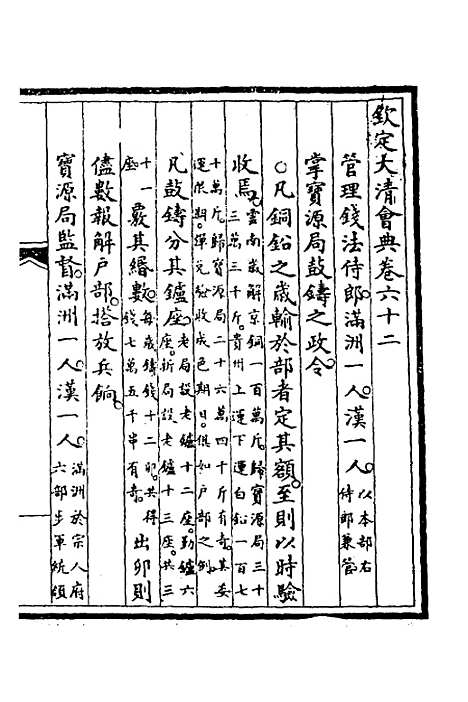 欽定大清會典卷六十二
管理錢法侍郎。滿洲一人。漢一人。以本部右
侍郎兼管
掌寶源局鼓鑄之政令。
○凡銅鉛之歲輸於部者定其額。至則以時驗
收焉。雲南歲解京銅一百萬斤。歸寶源局三十
三萬三千斤。貴州上運下運白鉛一百七
十萬斤。歸寶源局二十六萬四千斤有奇。其委
運限期。彈兌驗收成色期日。俱如戶部之例。
凡鼓鑄分其鑪座。老局設老鑪十二座。勤鑪六
座。新局設老鑪十三座。共三
十一座
覈其緡數。每歲鑄錢十二卯。共得
錢七萬五千串有奇。
出卯則
儘數報解戶部。搭放兵餉。
寶源局監督。滿洲一人。漢一人。滿洲於宗人府
六部步軍統領